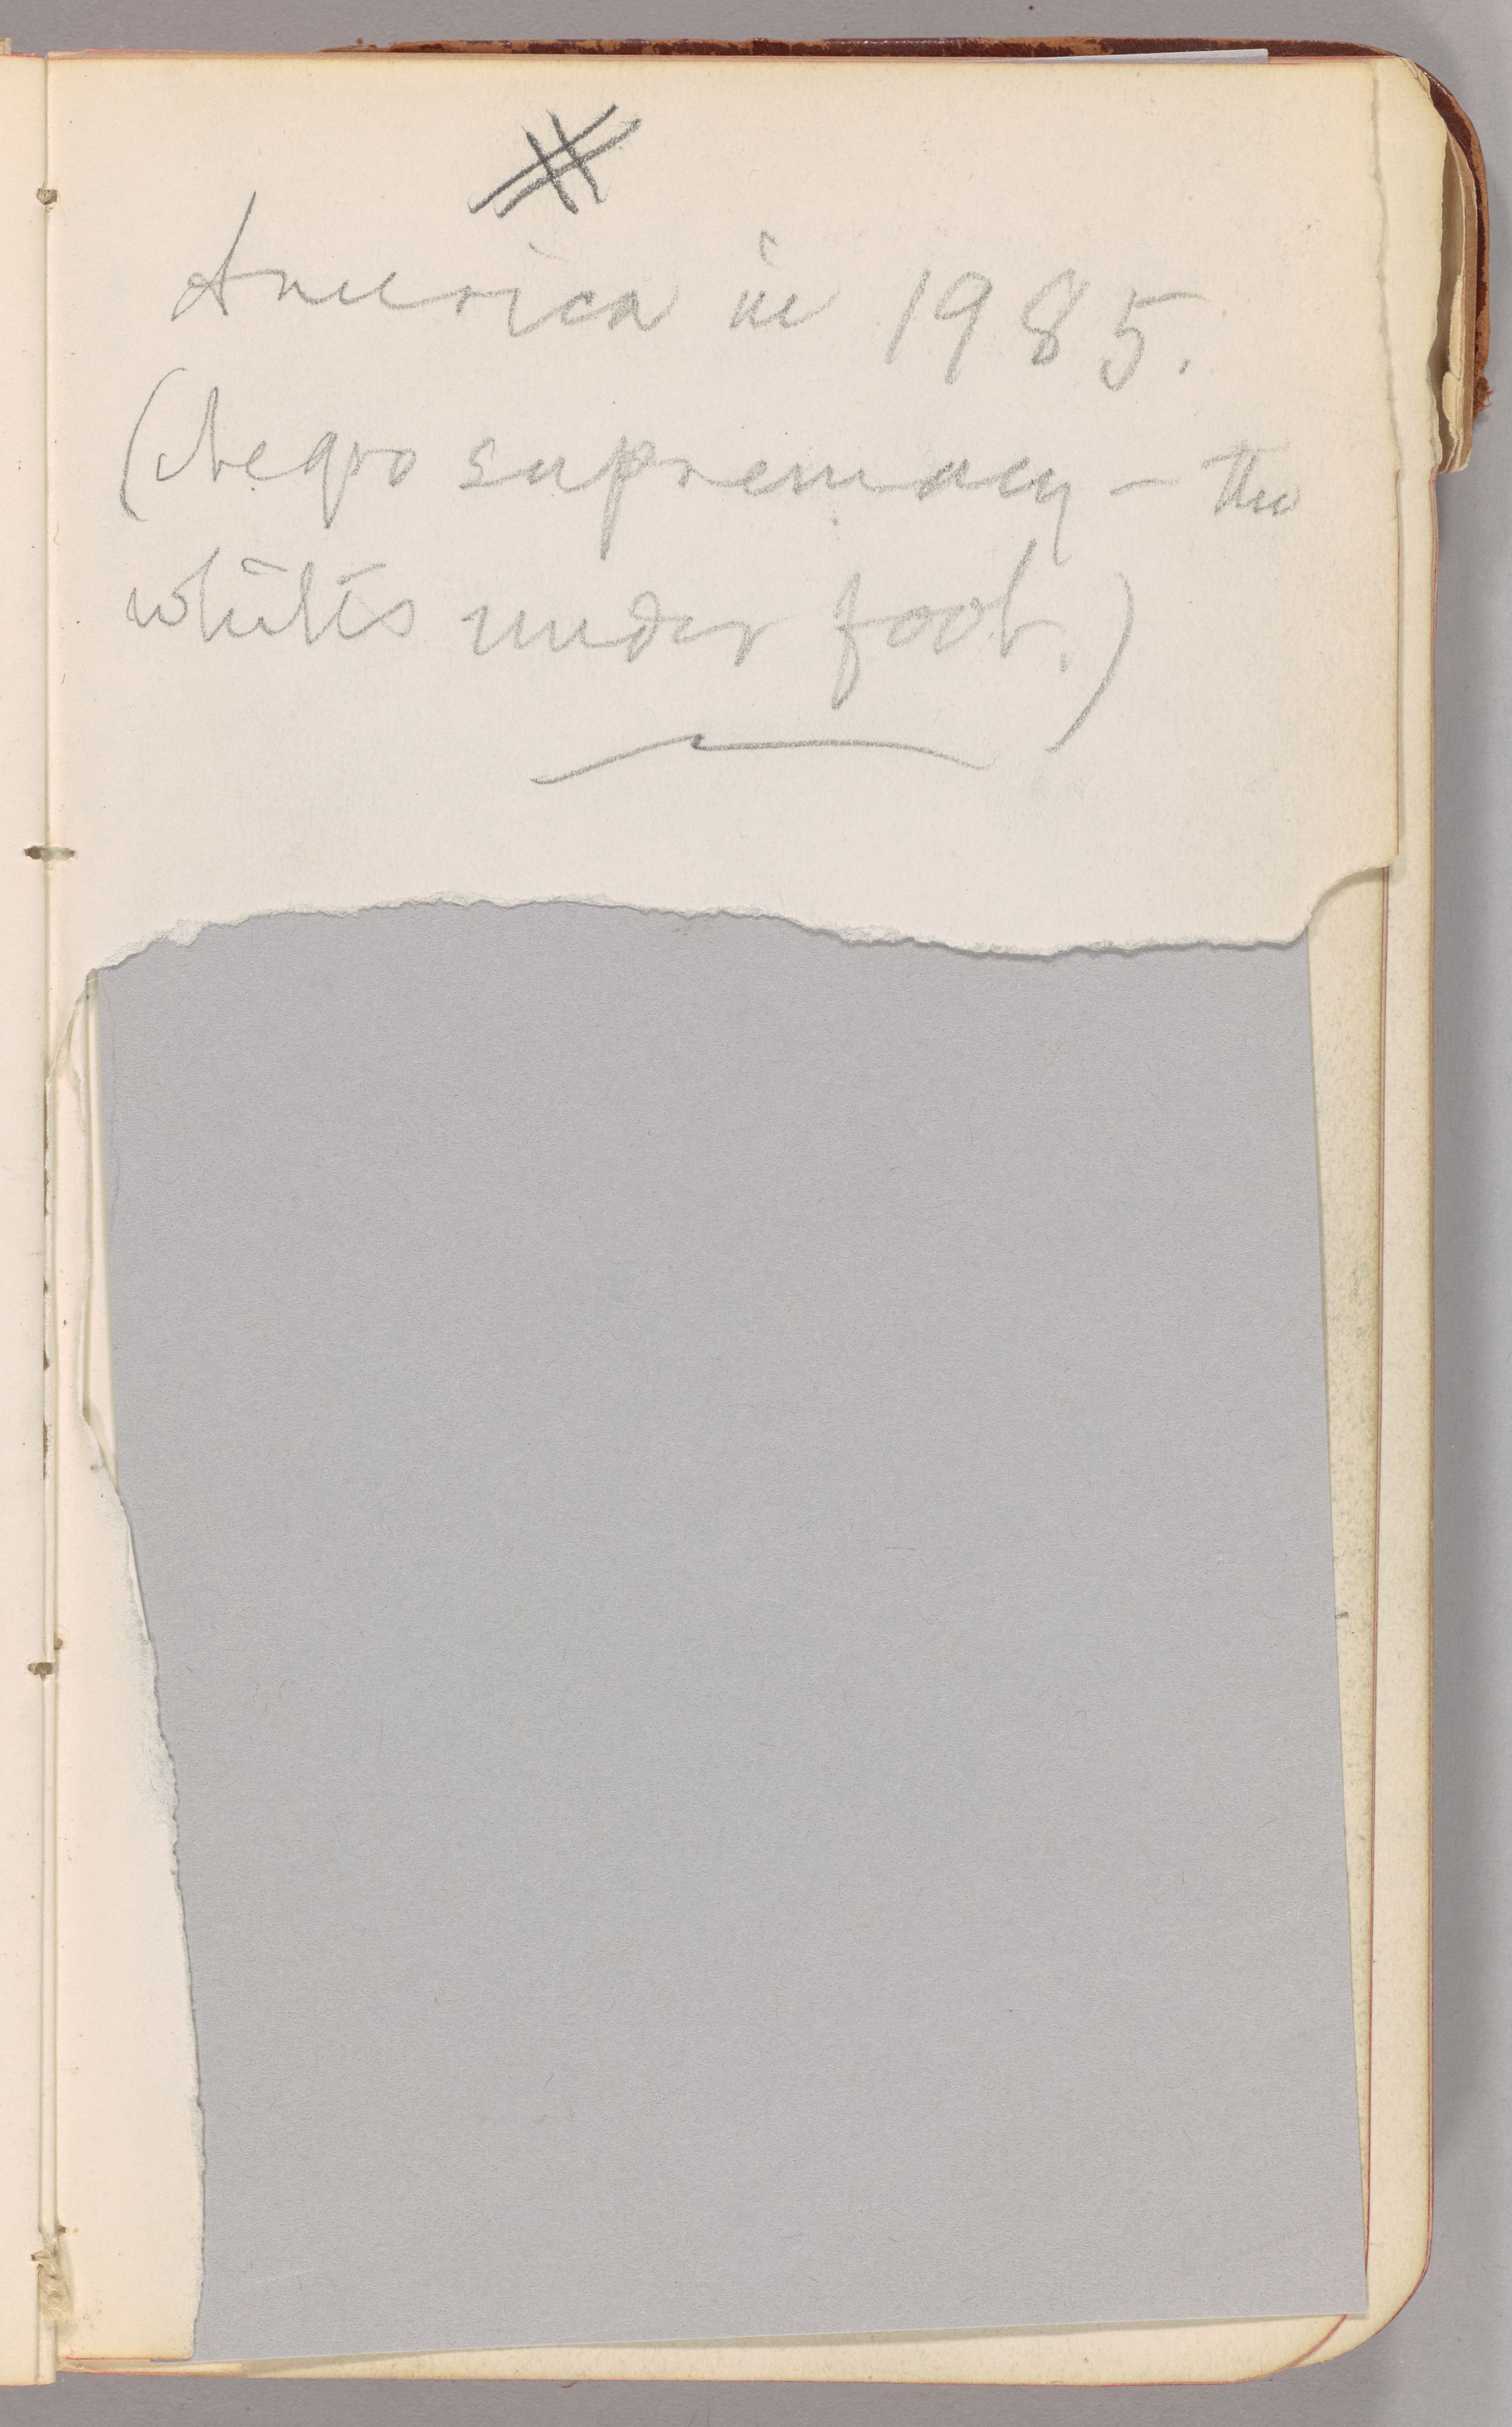 #
America in 1985.
(Negro supremacy — the
whites under foot.)